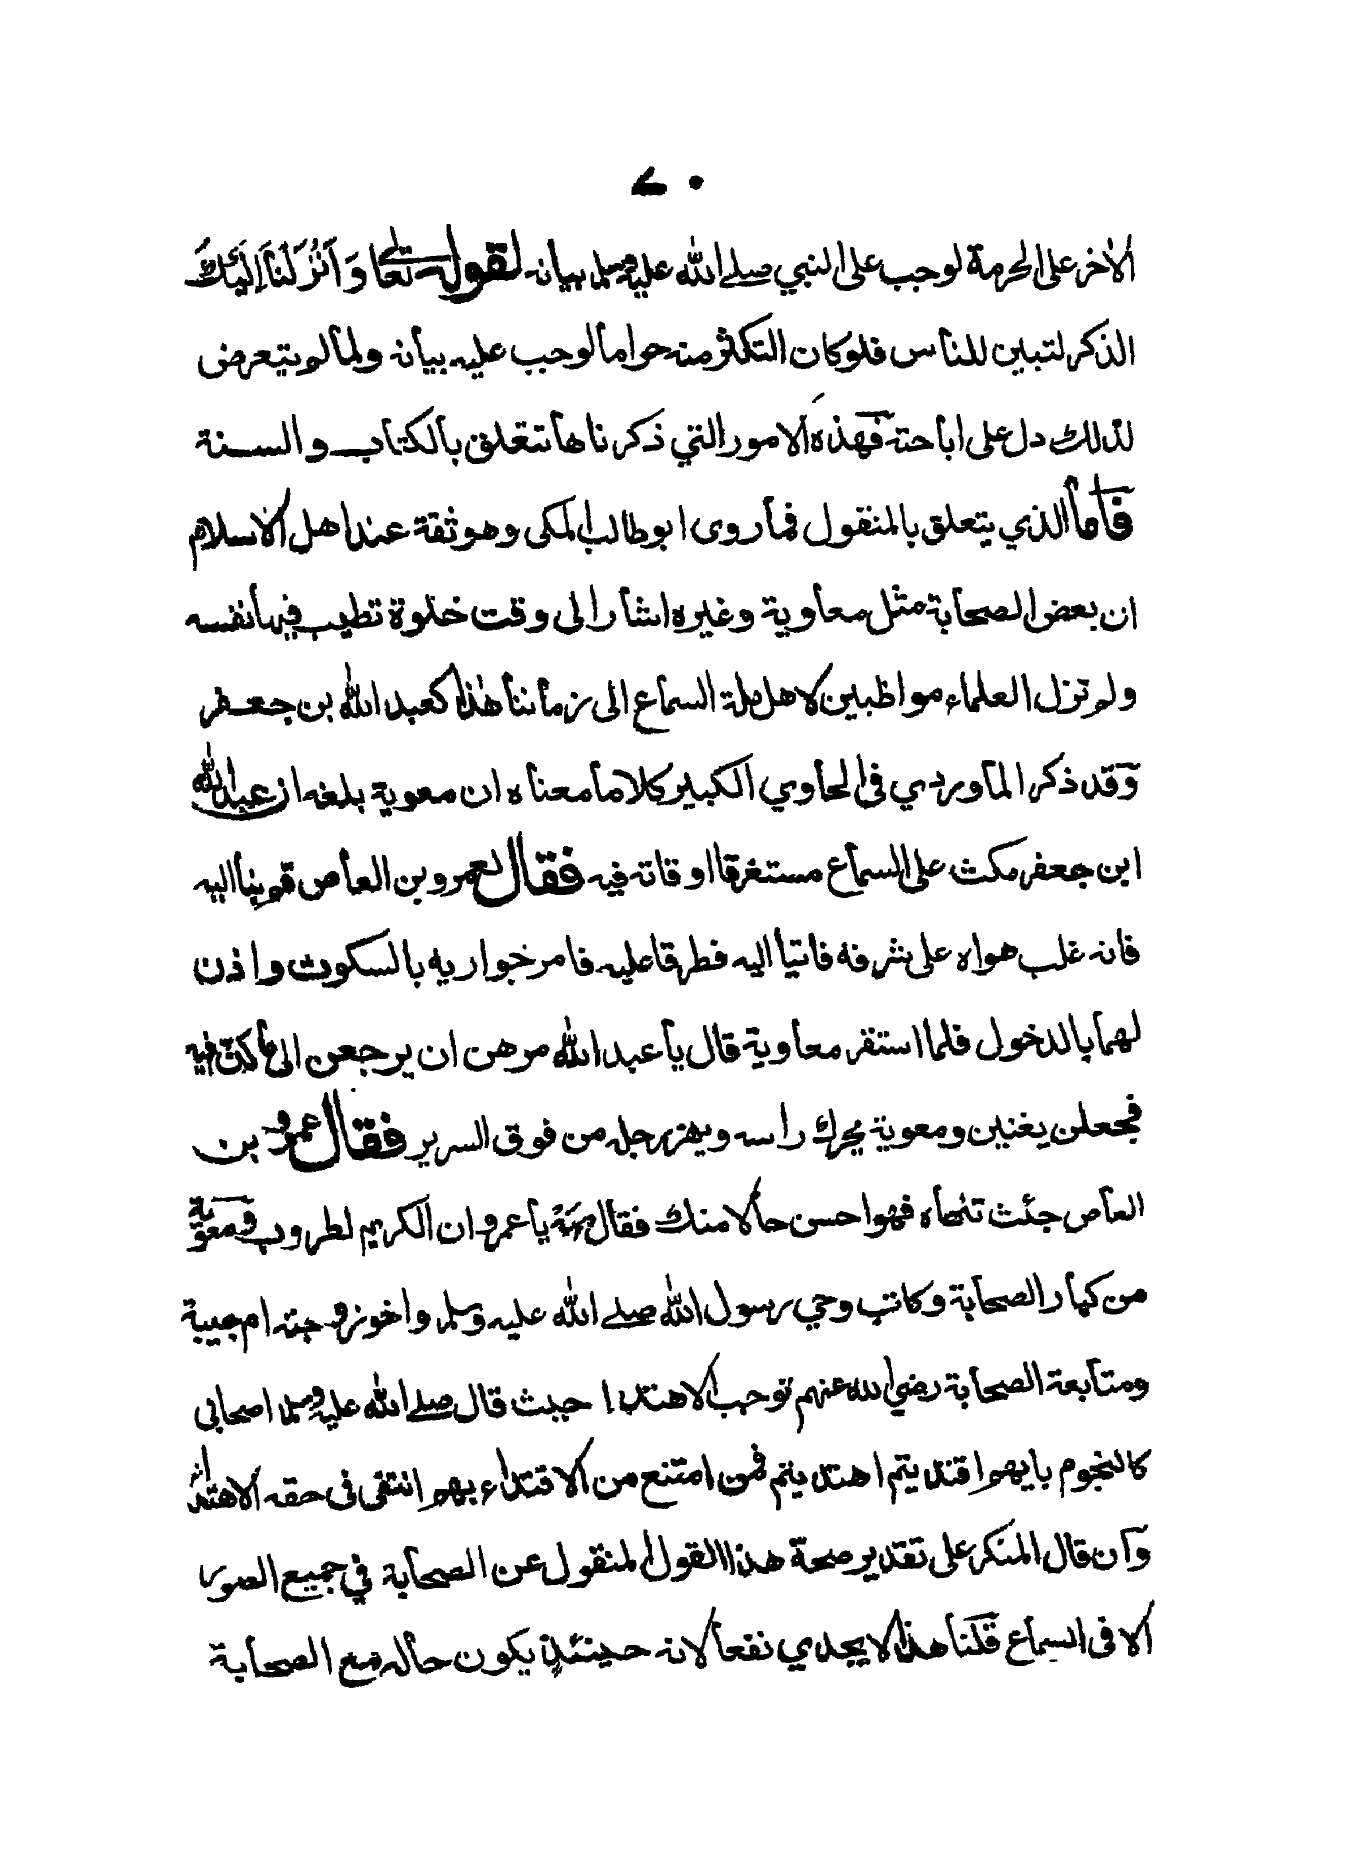 ٧٠
الاخر على الحرمة لوجب على النبي صلى الله عليه وسلم بيانه لقوله تعالى وَاَنْزَلْنَا اِلَيْكَ
الذكر لتبين للناس فلو كان التكلثر منه حراما لوجب عليه بيانه ولما لم يتعرض
لذلك دل على اباحته فهذه الامور التي ذكرناها تتعلق بالكتاب والسنة
فاما الذي يتعلق بالمنقول فما روى ابو طالب المكى وهو ثقة عند اهل الاسلام
ان بعض الصحابة مثل معاوية وغيره اشارالى وقت خلوة تطيب فيها نفسه
ولم تزل العلماء مواظبين لاهل ملة السماع الى زماننا هذا كعبد الله بن جعفر
وقد ذكر الماوردي فى الحاوي الكبير كلاما معناه ان معوية بلغه ان عبد الله
ابن جعفر مكث على السماع مستغرقا اوقاته فيه فقال لعمرو بن العاص قم بنا اليه
فانه غلب هواه على شرفه فاتيا اليه فطرقا عليه فامر جواريه بالسكوت واذن
لهما بالدخول فلما استقر معاوية قال يا عبد الله مرهن ان يرجعن الى ما كن فيه
فجعلن يغنين ومعوية يحرك راسه ويهز رجله من فوق السرير فقال عمرو بن
العاص جئت تنهاه فهو احسن حالا منك فقال مَهْ يا عمرو ان الكريم لطروب فمعوية
من كبار الصحابة وكاتب وحي رسول الله صلى الله عليه وسلم واخو زوجته ام حبيبة
ومتابعة الصحابة رضي الله عنهم توجب الاهتدا حيث قال صلى الله عليه وسلم اصحابى
كالنجوم بايهم اقتديتم اهتديتم فمن امتنع من الاقتداء بهم انتفى فى حقه الاهتداء
وان قال المنكر على تقدير صحة هذا القول المنقول عن الصحابة في جميع الصور
الا فى السماع قلنا هذا لا يجدي نفعا لانه حينئذٍ يكون حاله مع الصحابة